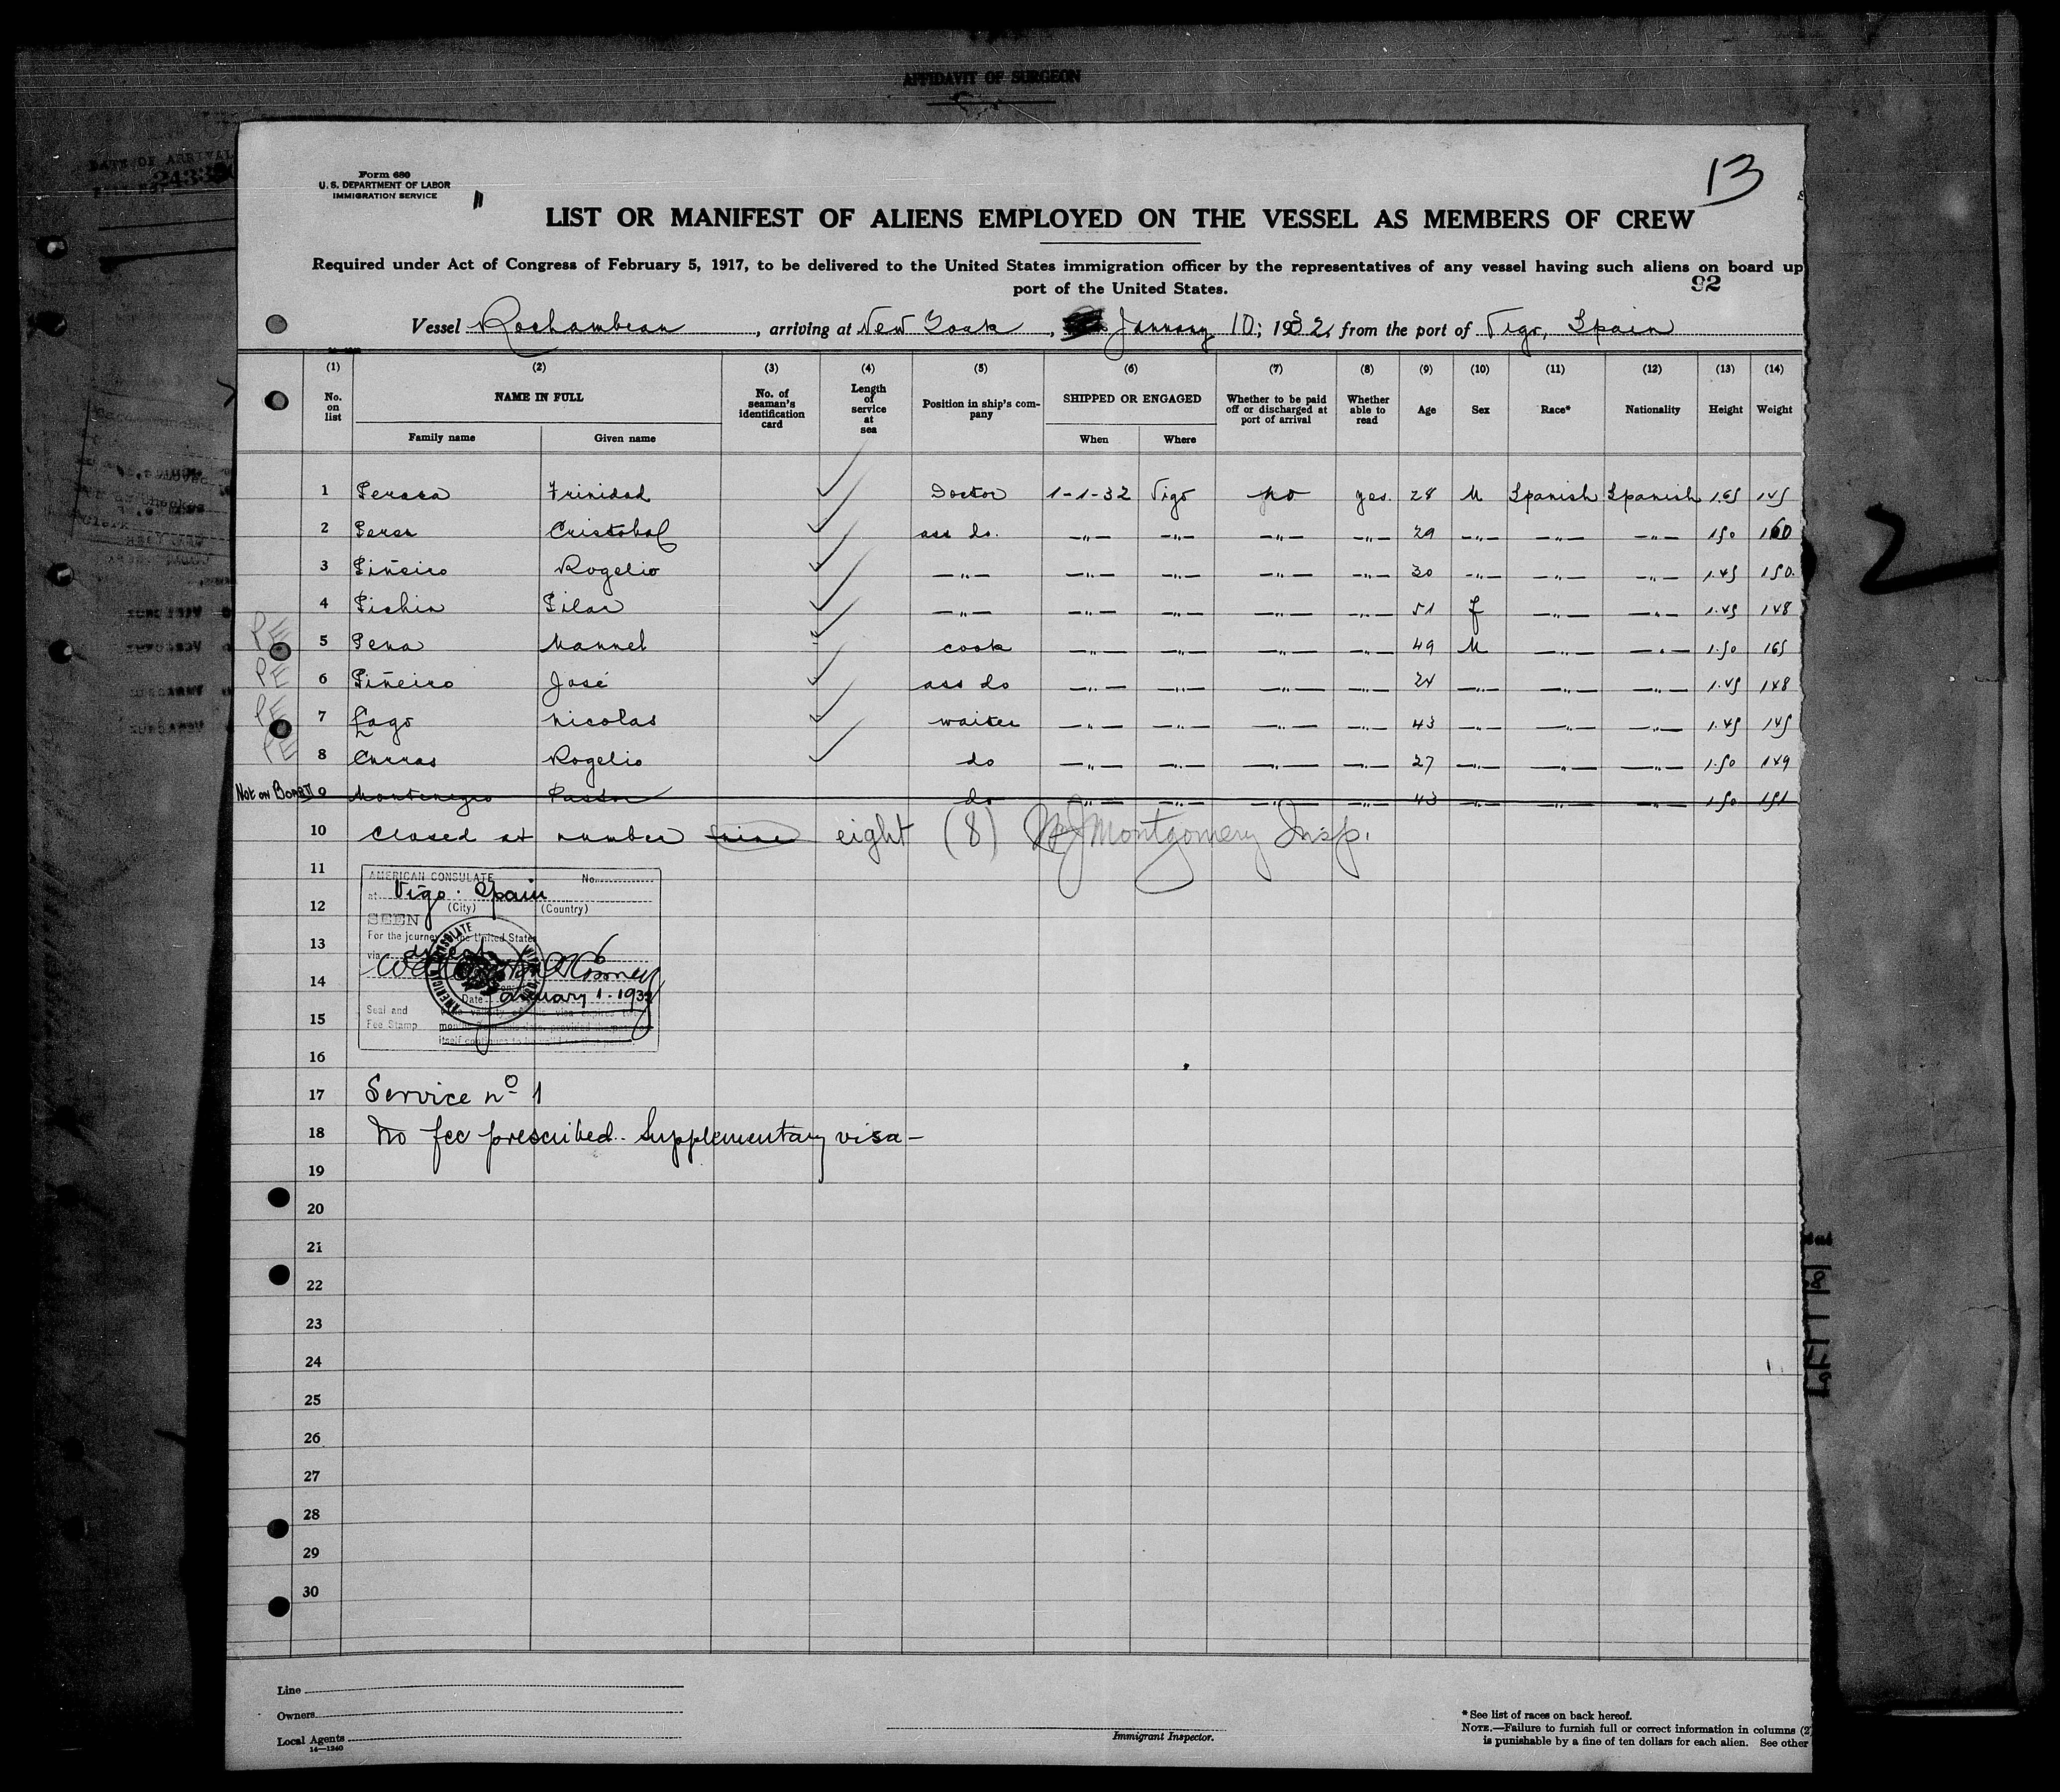 AFFIDAVIT OF SURGEON
DATE OF ARRIVAL
Form 680
U. S. DEPARTMENT OF LABOR
IMMIGRATION SERVICE
13
LIST OR MANIFEST OF ALIENS EMPLOYED ON THE VESSEL AS MEMBERS OF CREW
Required under Act of Congress of February 5, 1917, to be delivered to the United States immigration officer by the representatives of any vessel having such aliens on board up
port of the United States.
92
Vessel Rochambeau, arriving at New York, January 10, 1932, from the port of Vigo, Spain
(1) (2) (3) (4) (5) (6) (7) (8) (9) (10) (11) (12) (13) (14)
No. on list NAME IN FULL No. of seaman's identification card Length of service at sea Position in ship's company SHIPPED OR ENGAGED Whether to be paid off or discharged at port of arrival Whether able to read Age Sex Race* Nationality Height Weight
Family name Given name When Where
1 Trinidad Doctor 1-1-32 Vigo no yes 28 M Spanish Spanish 1.65 145
2 Perez Cristobal ass do. —"— —"— —"— —"— 29 —"— —"— —"— 150 160
3 Piñeiro Rogelio —"— —"— —"— —"— —"— 30 —"— —"— —"— 1.45 150
4 Pichin Pilar —"— —"— —"— —"— —"— 51 f —"— —"— 1.45 148
PE 5 Pena Manuel cook —"— —"— —"— —"— 49 M —"— —"— 1.50 165
PE 6 Piñeiro José ass do —"— —"— —"— —"— 24 —"— —"— —"— 1.45 148
PE 7 Lago Nicolas waiter —"— —"— —"— —"— 43 —"— —"— —"— 1.45 145
PE 8 Curras Rogelio do —"— —"— —"— —"— 27 —"— —"— —"— 1.50 149
Not on Board 9 Montenegro Pastor do —"— —"— —"— —"— 43 —"— —"— —"— 1.50 151
10 Closed at number nine eight (8) Montgomery Insp.
2
11
AMERICAN CONSULATE No.
at Vigo. Spain
12
(City) (Country)
SEEN
13
For the journey to the United States
via
14
Date January 1-1932
15
Seal and
Fee Stamp
16
17 Service nº 1
18 No fee prescribed. Supplementary visa—
19
20
21
22
23
24
25
26
27
28
29
30
Line
Owners
Local Agents
14—1240
Immigrant Inspector.
* See list of races on back hereof.
NOTE.—Failure to furnish full or correct information in columns (2
is punishable by a fine of ten dollars for each alien. See other